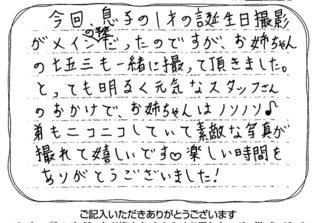 今回、息子の1才の誕生日撮影
がメインだったのですが、お姉ちゃん
の七五三も一緒に撮って頂きました。
とっても明るく元気なスタッフさん
のおかけで、お姉ちゃんはノリノリ♪
弟もニコニコしていて素敵な写真が
撮れて嬉しいです♡ 楽しい時間を
ありがとうございました!
ご記入いただきありがとうございます